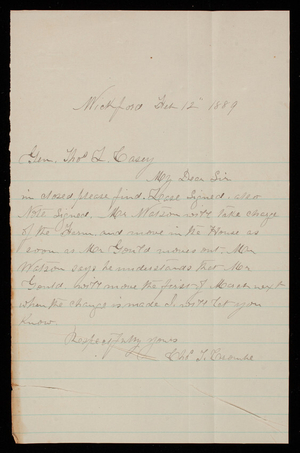 Wickford Feb 12th 1889
Gen. Thos L. Casey
My Dear Sir
in closed please find Lease Signed. also
Note Signed. Mr Watson will take charge
of the Farm and move in the House as
soon as Mr Gould moves out. Mr
Watson says he understands that Mr
Gould will move the first of March next
when the change is made I will let you
know.
Respectfully yours
Thos T.